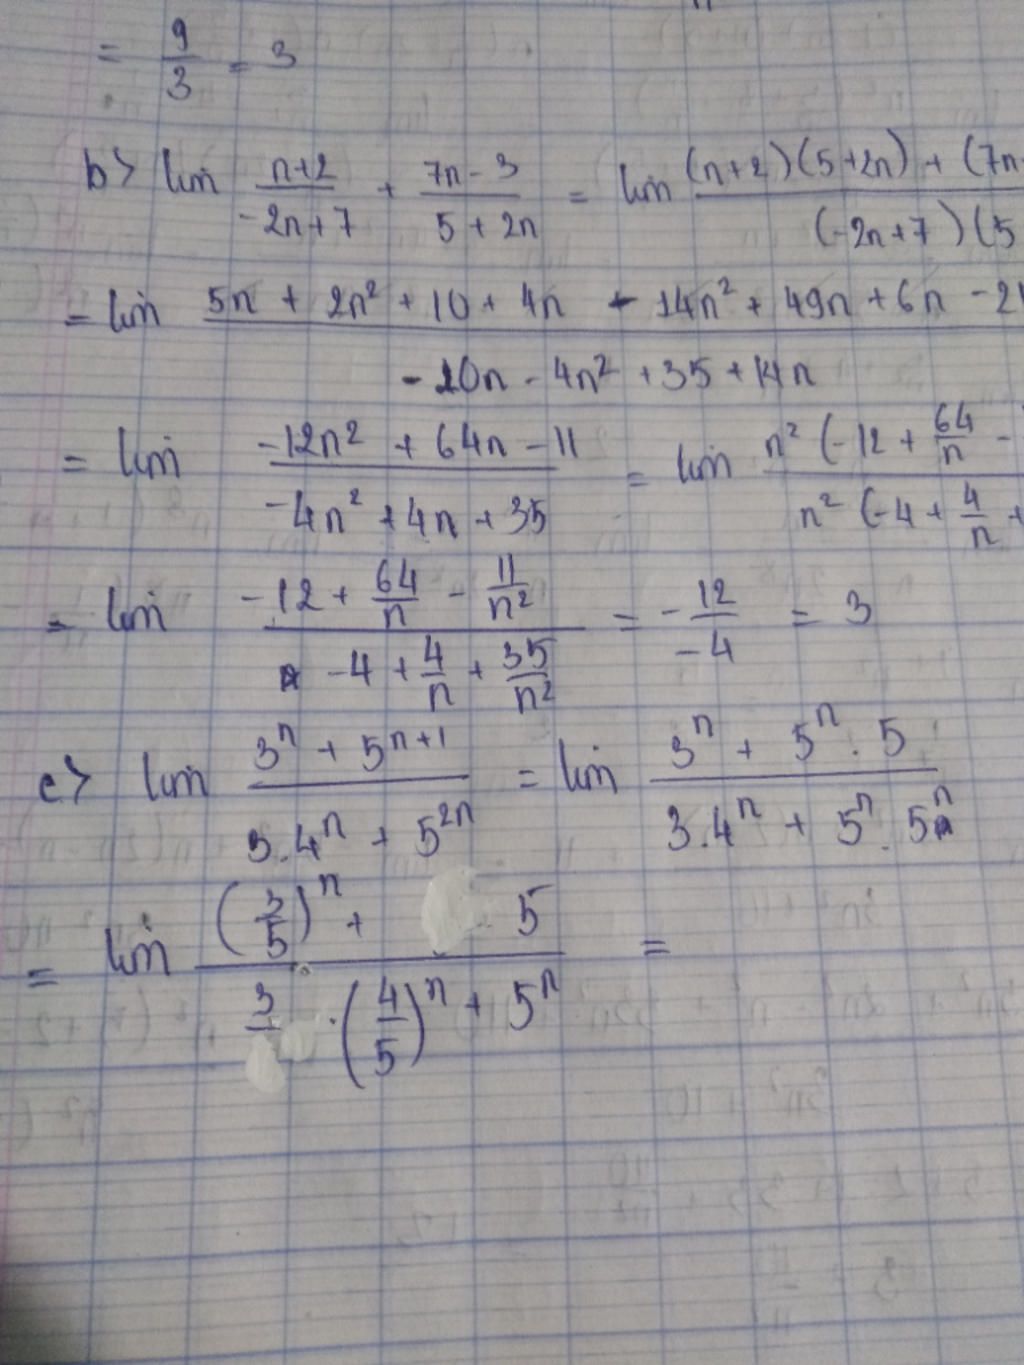 = 9/3 = 3
b> lim (n+2)/(-2n+7) + (7n-3)/(5+2n) = lim ((n+2)(5+2n) + (7n-)/((-2n+7)(5
= lim (5n + 2n² + 10 + 4n - 14n² + 49n + 6n - 21)/(-20n - 4n² + 35 + 14n)
= lim (-12n² + 64n - 11)/(-4n² + 4n + 35) = lim (n² (-12 + 64/n -)/(n² (-4 + 4/n +)
= lim (-12 + 64/n - 11/n²)/(-4 + 4/n + 35/n²) = -12/-4 = 3
c> lim (3ⁿ + 5ⁿ⁺¹)/(3.4ⁿ + 5²ⁿ) = lim (3ⁿ + 5ⁿ. 5)/(3.4ⁿ + 5ⁿ. 5ⁿ)
= lim ((3/5)ⁿ + 5)/(3 . (4/5)ⁿ + 5ⁿ) =